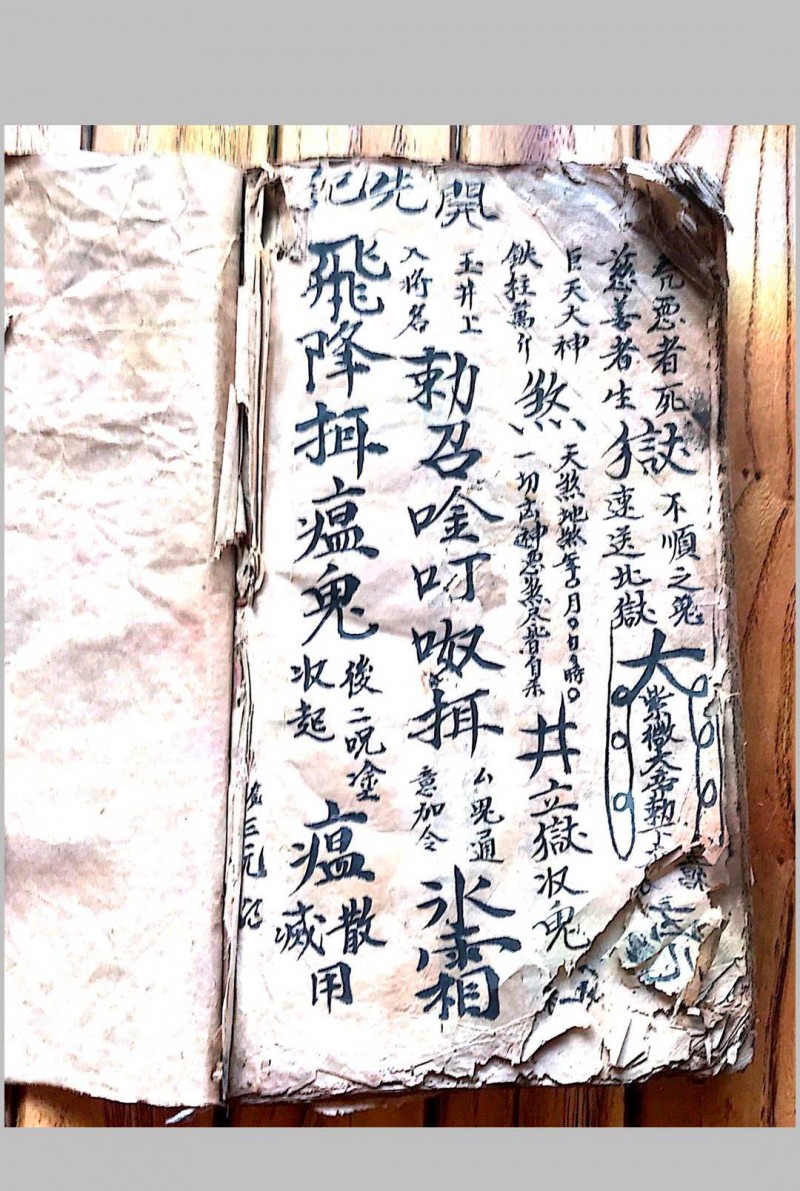 開先祀
兇惡者死
慈善者生
獄
不順之鬼
速送北獄
大
紫微大帝勅下
巨天大神
鉄柱萬斤
煞
天煞地煞年〇月〇日〇時〇
一切凶神惡煞尽皆自
井立獄收鬼
玉井上
入將名
勅召唫叮呶挕
鬼通
意加令
氷霜
飛降挕瘟鬼
後二呪塗
收起
瘟
散
滅
用
三元